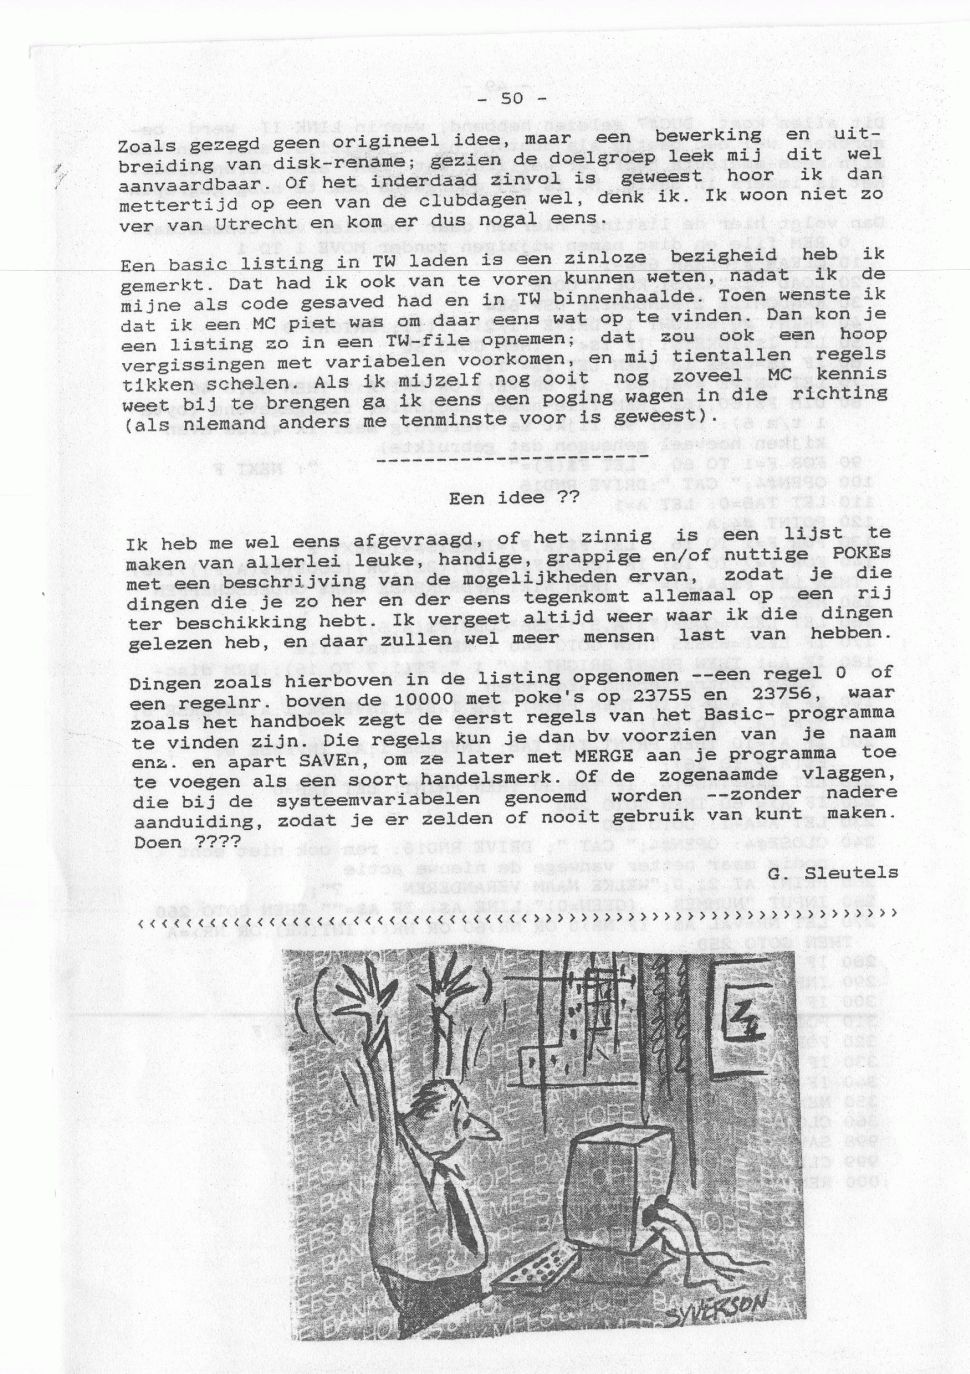 - 50 -
Zoals gezegd geen origineel idee, maar een bewerking en uit-
breiding van disk-rename; gezien de doelgroep leek mij dit wel
aanvaardbaar. Of het inderdaad zinvol is geweest hoor ik dan
mettertijd op een van de clubdagen wel, denk ik. Ik woon niet zo
ver van Utrecht en kom er dus nogal eens.
Een basic listing in TW laden is een zinloze bezigheid heb ik
gemerkt. Dat had ik ook van te voren kunnen weten, nadat ik de
mijne als code gesaved had en in TW binnenhaalde. Toen wenste ik
dat ik een MC piet was om daar eens wat op te vinden. Dan kon je
een listing zo in een TW-file opnemen; dat zou ook een hoop
vergissingen met variabelen voorkomen, en mij tientallen regels
tikken schelen. Als ik mijzelf nog ooit nog zoveel MC kennis
weet bij te brengen ga ik eens een poging wagen in die richting
(als niemand anders me tenminste voor is geweest).
-----------------------
Een idee ??
Ik heb me wel eens afgevraagd, of het zinnig is een lijst te
maken van allerlei leuke, handige, grappige en/of nuttige POKEs
met een beschrijving van de mogelijkheden ervan, zodat je die
dingen die je zo her en der eens tegenkomt allemaal op een rij
ter beschikking hebt. Ik vergeet altijd weer waar ik die dingen
gelezen heb, en daar zullen wel meer mensen last van hebben.
Dingen zoals hierboven in de listing opgenomen --een regel 0 of
een regelnr. boven de 10000 met poke's op 23755 en 23756, waar
zoals het handboek zegt de eerst regels van het Basic- programma
te vinden zijn. Die regels kun je dan bv voorzien van je naam
enz. en apart SAVEn, om ze later met MERGE aan je programma toe
te voegen als een soort handelsmerk. Of de zogenaamde vlaggen,
die bij de systeemvariabelen genoemd worden --zonder nadere
aanduiding, zodat je er zelden of nooit gebruik van kunt maken.
Doen ????
G. Sleutels
‹‹‹‹‹‹‹‹‹‹‹‹‹‹‹‹‹‹‹‹‹‹‹‹‹‹‹‹‹‹‹‹››››››››››››››››››››››››››
MEES & HOPE BANK
SYVERSON